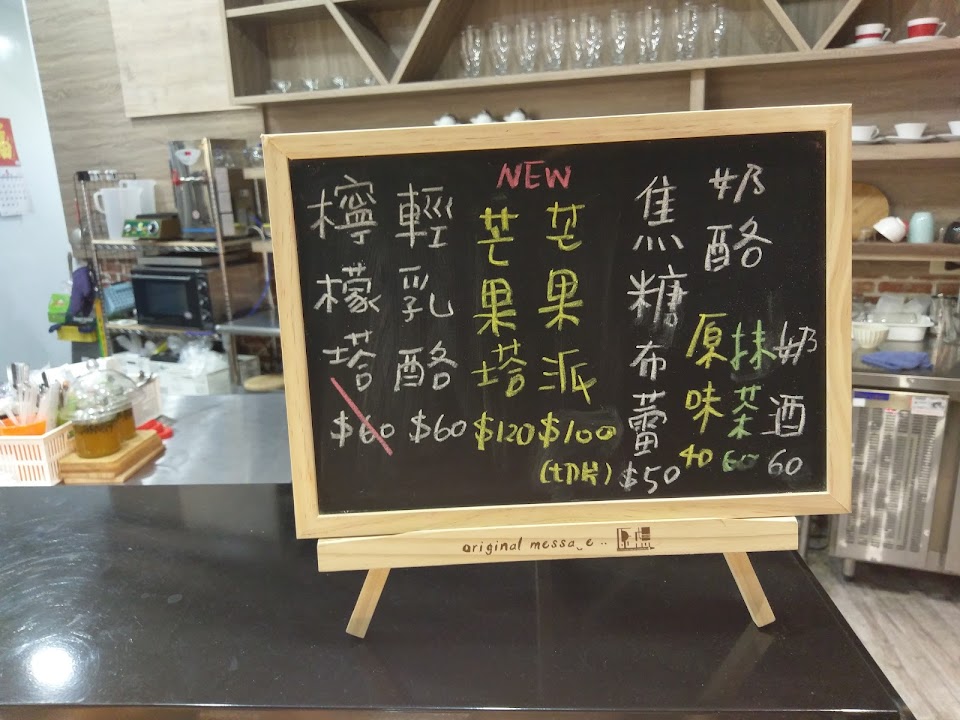 奶酪
原味 40
抹茶 60
奶酒 60
焦糖布蕾 $50
NEW
芒果派 $100
(切片)
芒果塔 $120
輕乳酪 $60
檸檬塔 $60
original message..